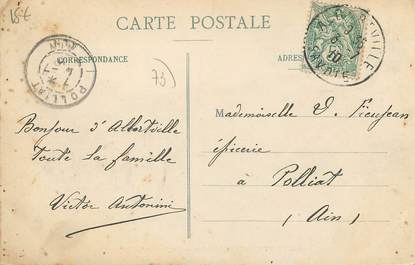 15€
CARTE POSTALE
CORRESPONDANCE
ADRESSE
POLLIAT
73
Bonjour d'Albertville
Toute la famille
Victor Antonini
Mademoiselle V. Fieujean
épicerie
à Polliat
(Ain)